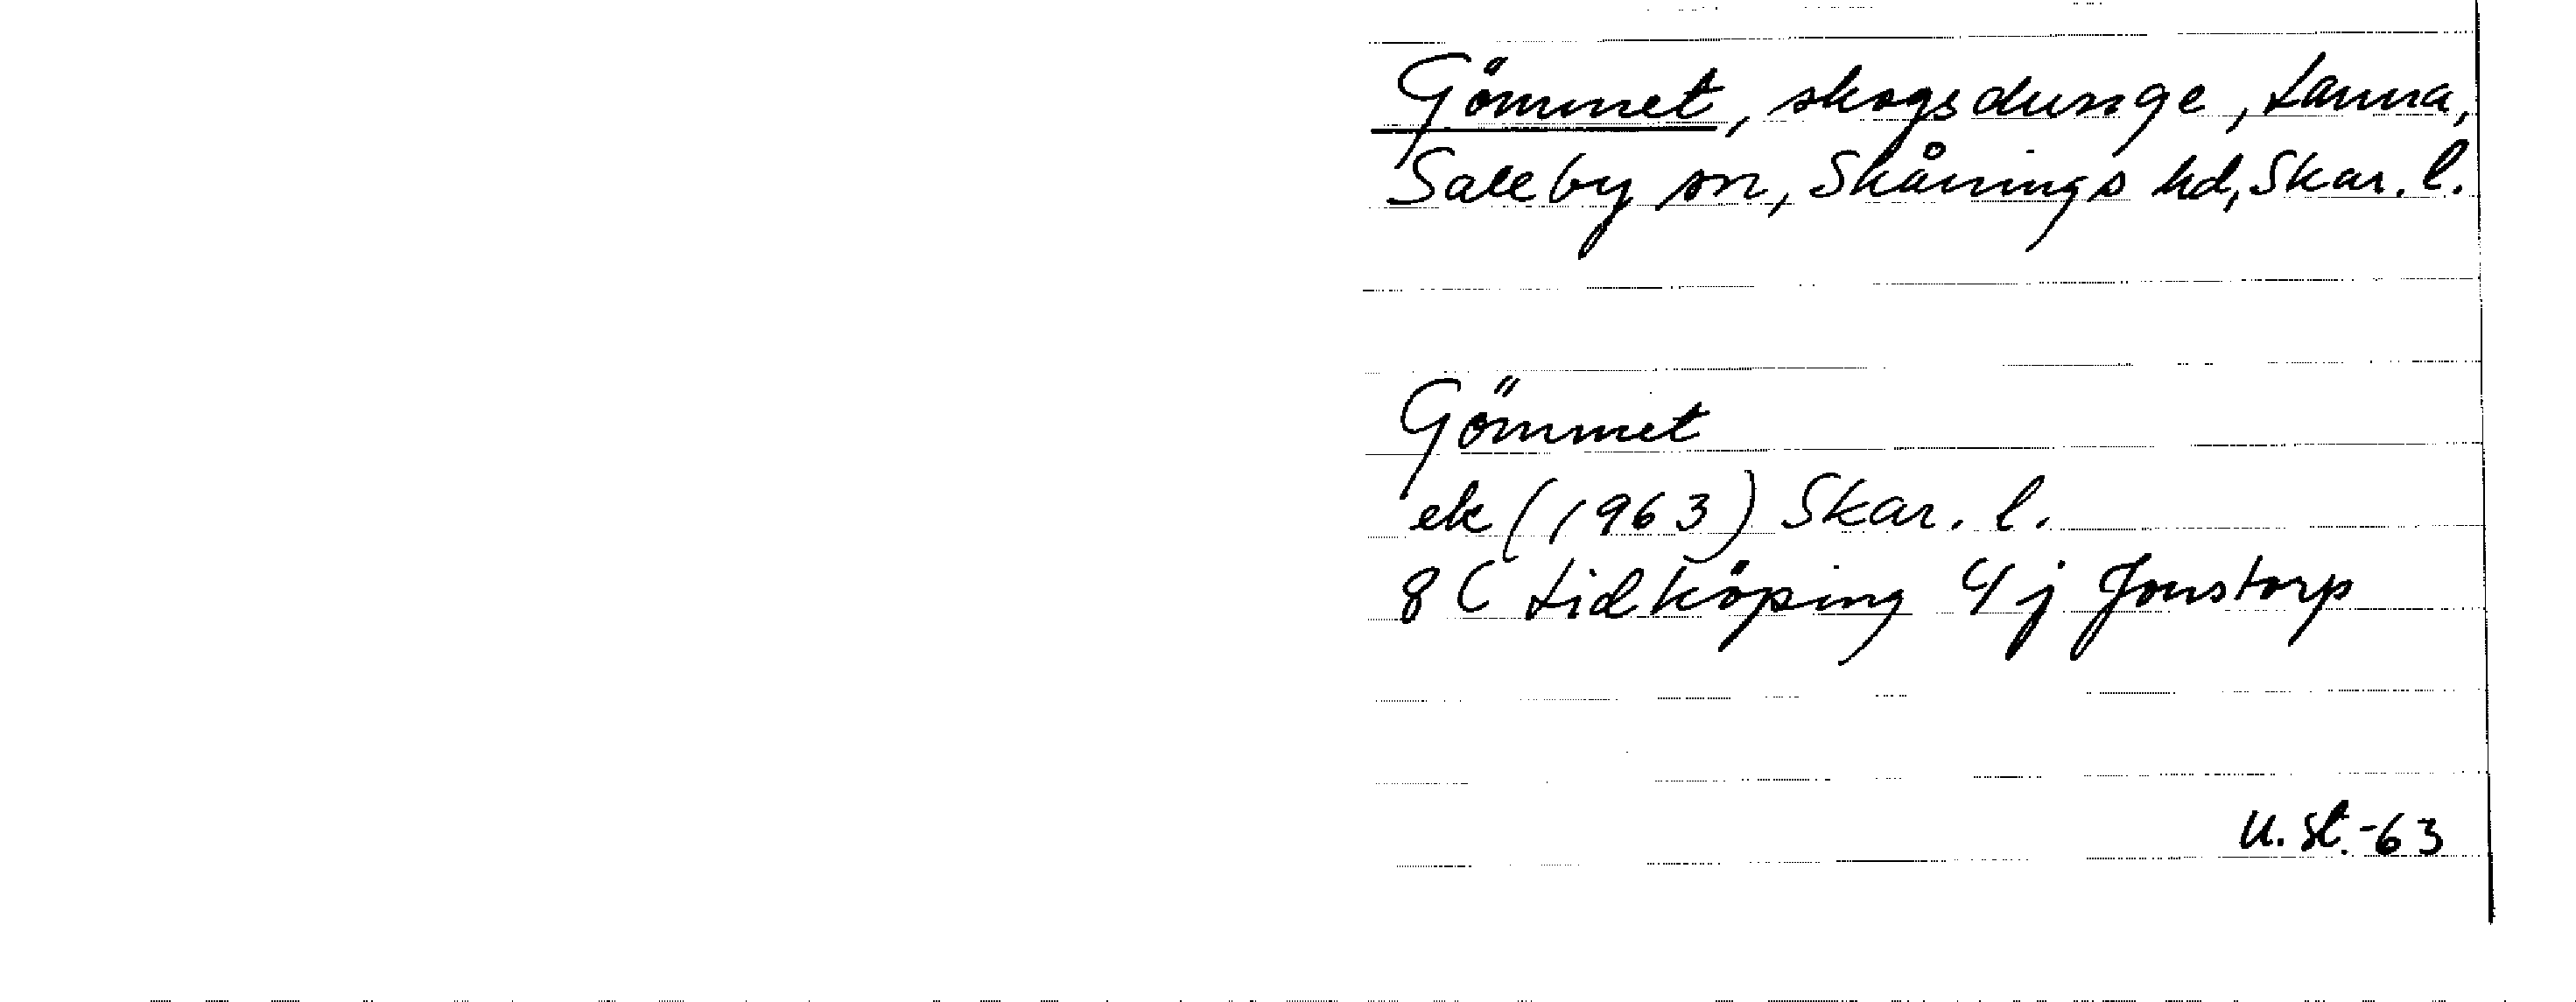 Gömmet, skogsdunge, Lanna,
Saleby sn, Skånings hd, Skar. l.
Gömmet
ek (1963) Skar. l.
8 C Lidköping 4j Jonstorp
U. St. -63